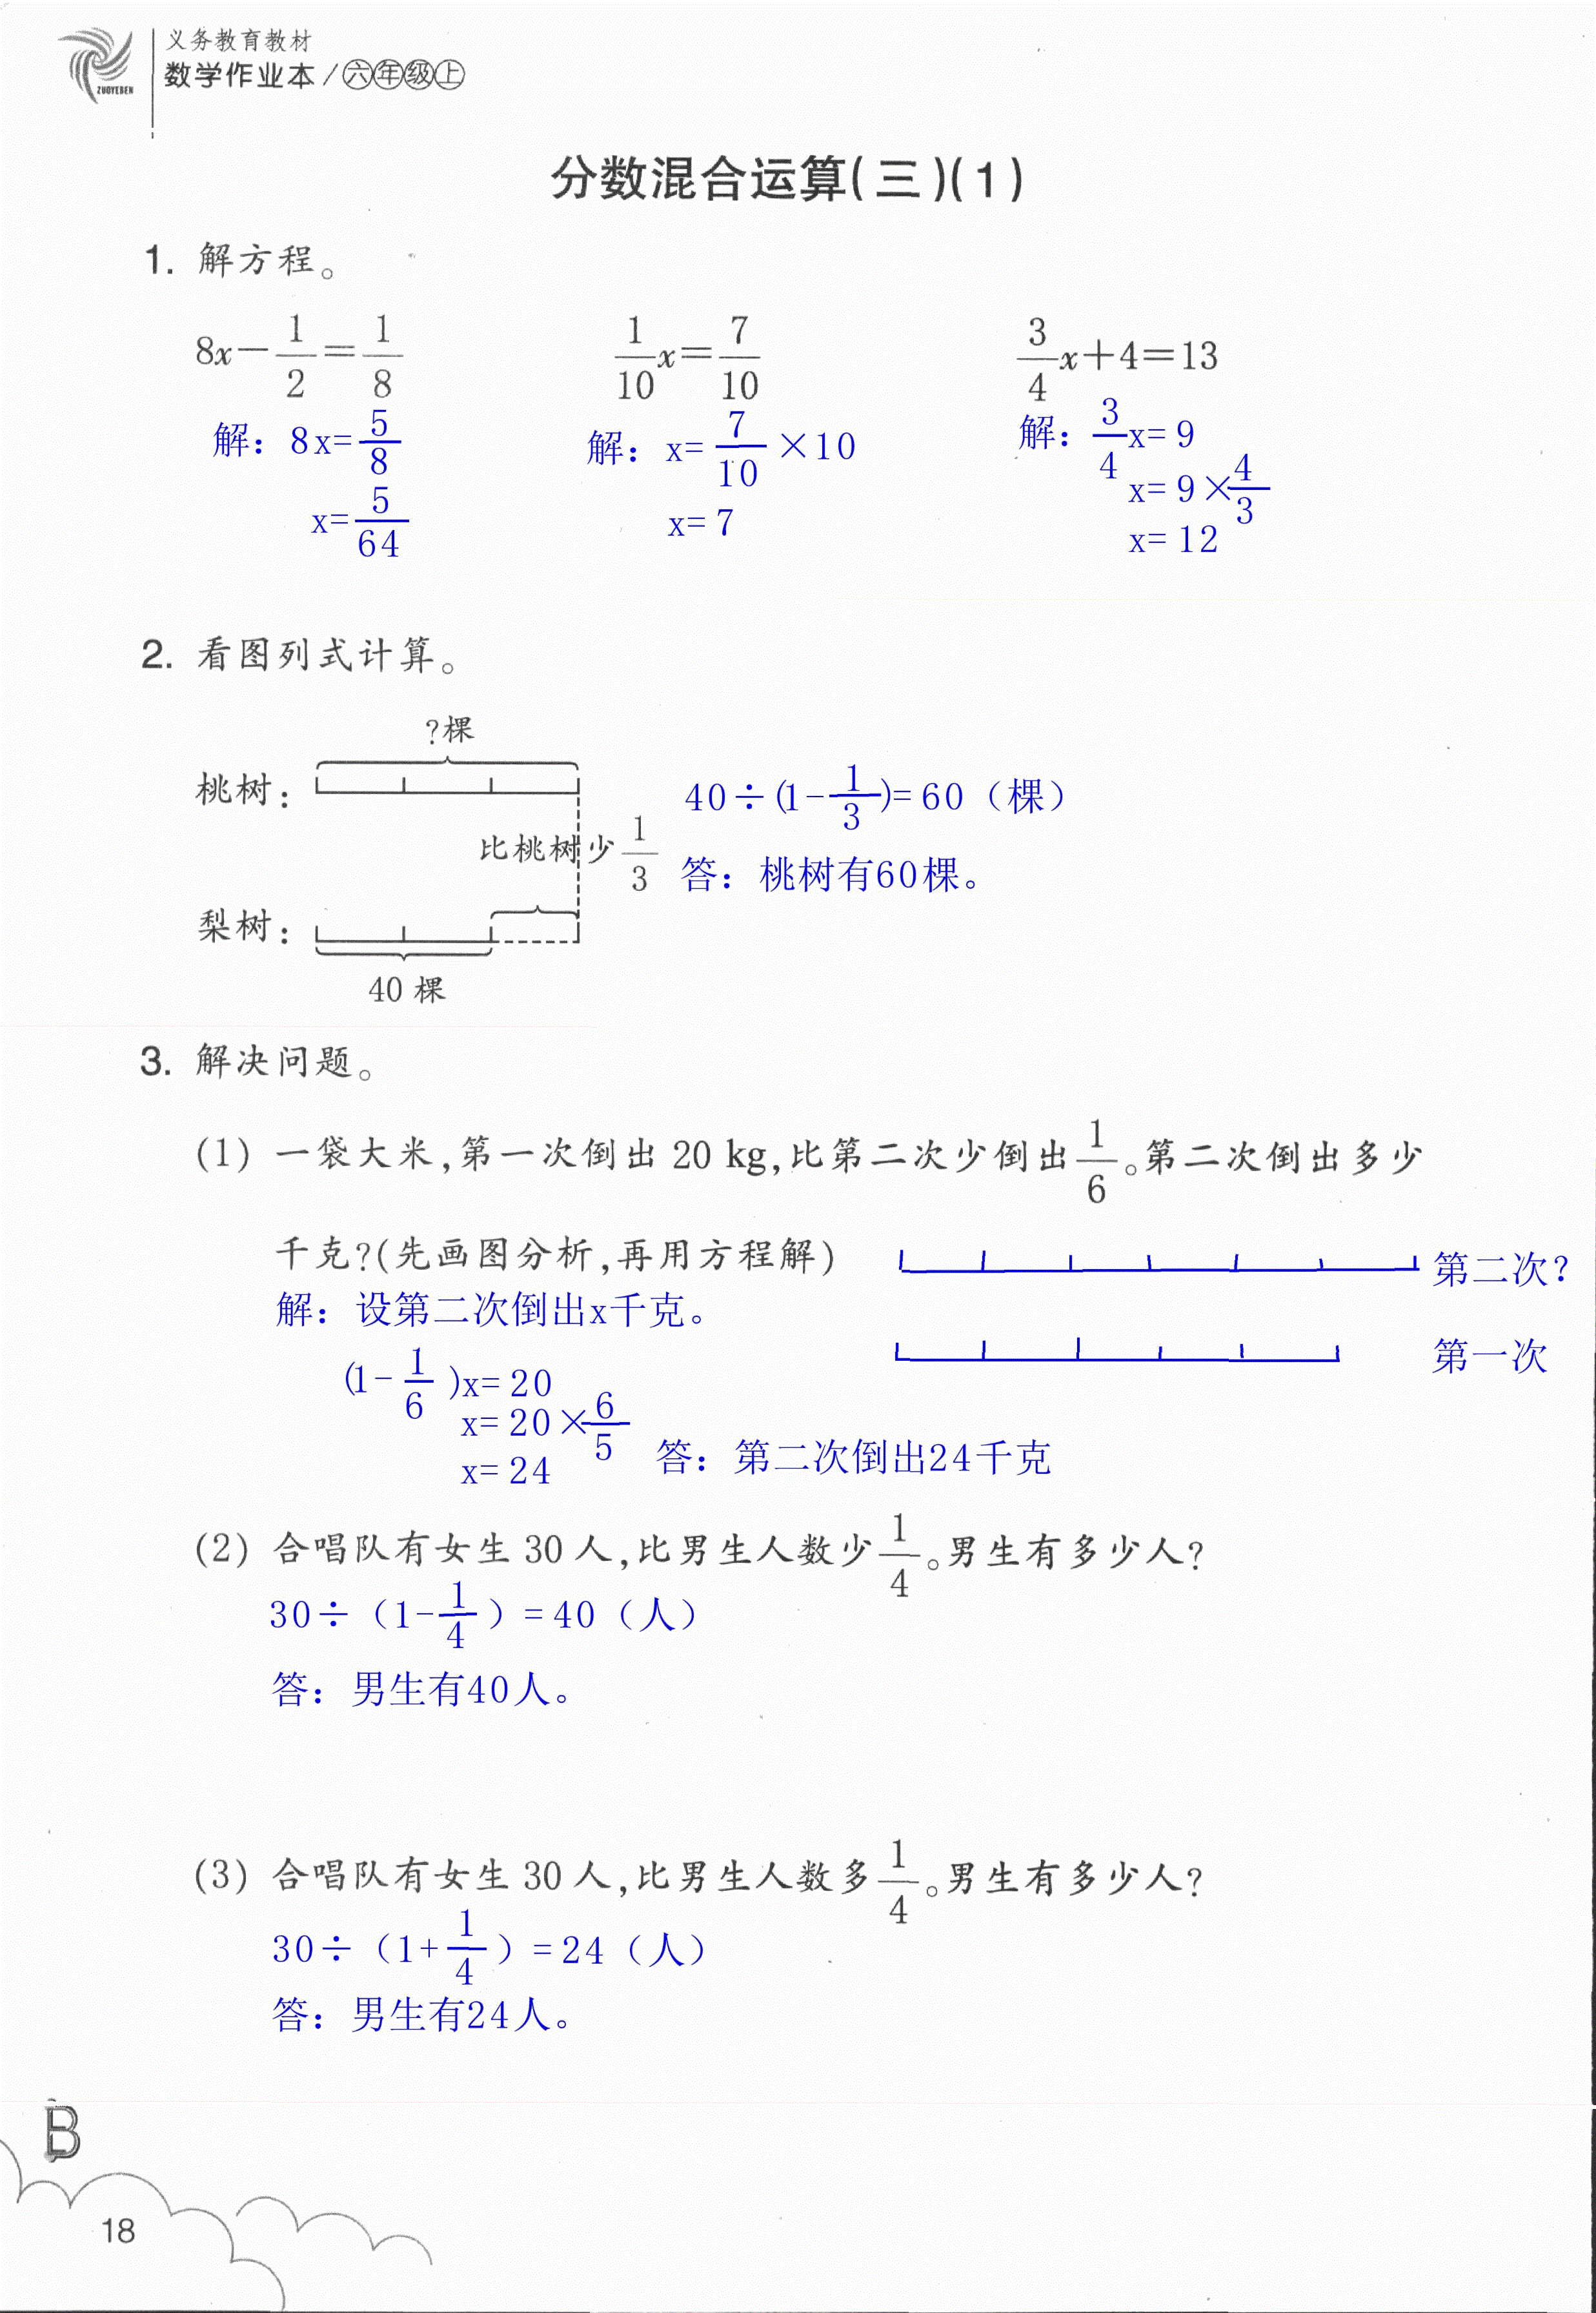 义务教育教材
数学作业本/六年级上
ZUOYEBEN
分数混合运算(三)(1)
1. 解方程。
8x-1/2=1/8    1/10x=7/10    3/4x+4=13
解：8x=5/8    解：x=7/10×10    解：3/4x=9
x=5/64    x=7    x=9×4/3
x=12
2. 看图列式计算。
?棵
桃树：
40÷(1-1/3)=60（棵）
比桃树少1/3
答：桃树有60棵。
梨树：
40 棵
3. 解决问题。
(1) 一袋大米,第一次倒出 20 kg,比第二次少倒出1/6。第二次倒出多少
千克?(先画图分析,再用方程解)
第二次?
解：设第二次倒出x千克。
第一次
(1-1/6)x=20
x=20×6/5
x=24
答：第二次倒出24千克
(2) 合唱队有女生 30 人,比男生人数少1/4。男生有多少人?
30÷（1-1/4）=40（人）
答：男生有40人。
(3) 合唱队有女生 30 人,比男生人数多1/4。男生有多少人?
30÷（1+1/4）=24（人）
答：男生有24人。
B
18